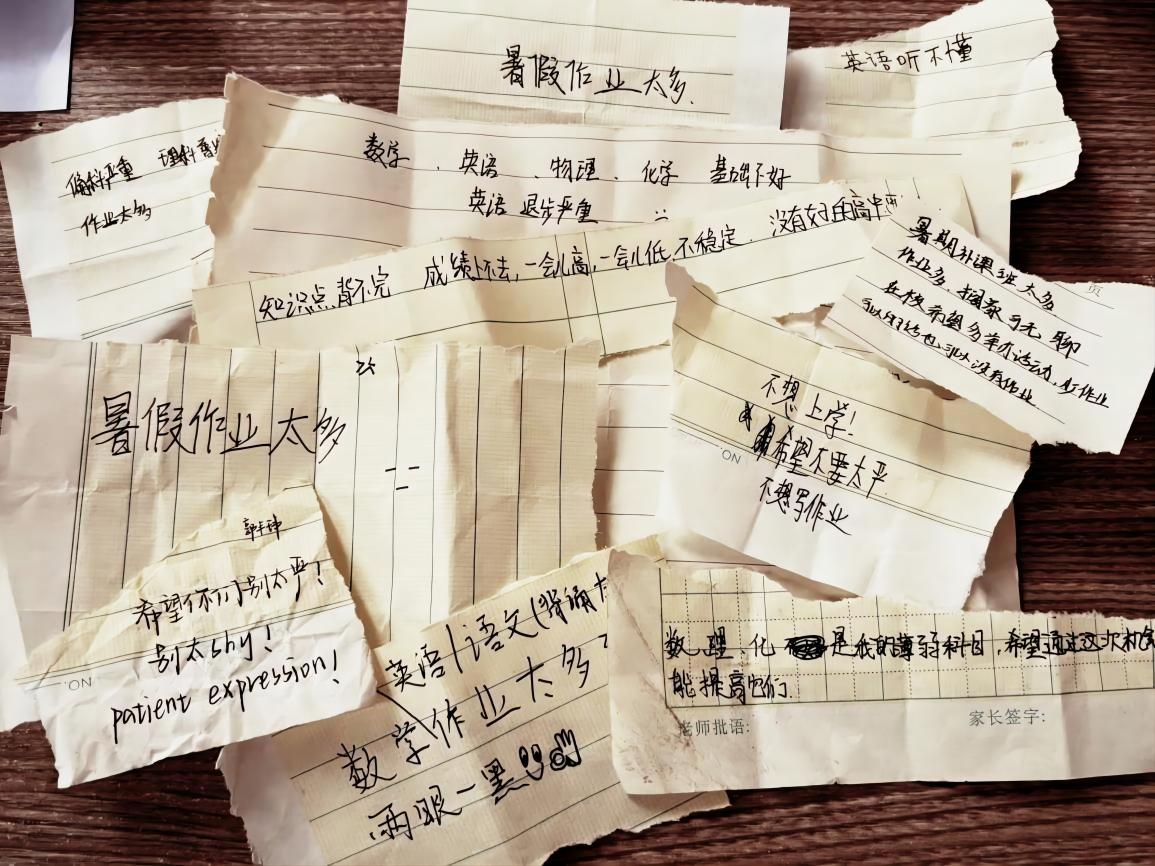 暑假作业太多.
英语听不懂
偏科严重 理科
作业太多
数学、英语、物理、化学 基础不好
英语 退步严重
知识点背不完 成绩上不去,一会儿高,一会儿低,不稳定. 没有好
暑期补课班太多
作业多 搁家
页
在校希望多举办运动,
作业
不想上学!
希望不要太平
不想写作业
ON
暑假作业太多
希望你们别太严!
别太shy!
patient expression!
ON
英语/语文(背诵
数学作业太多
两眼一黑
数、理、化 是我的薄弱科目,希望通过这次机会
能提高它们
老师批语:
家长签字: